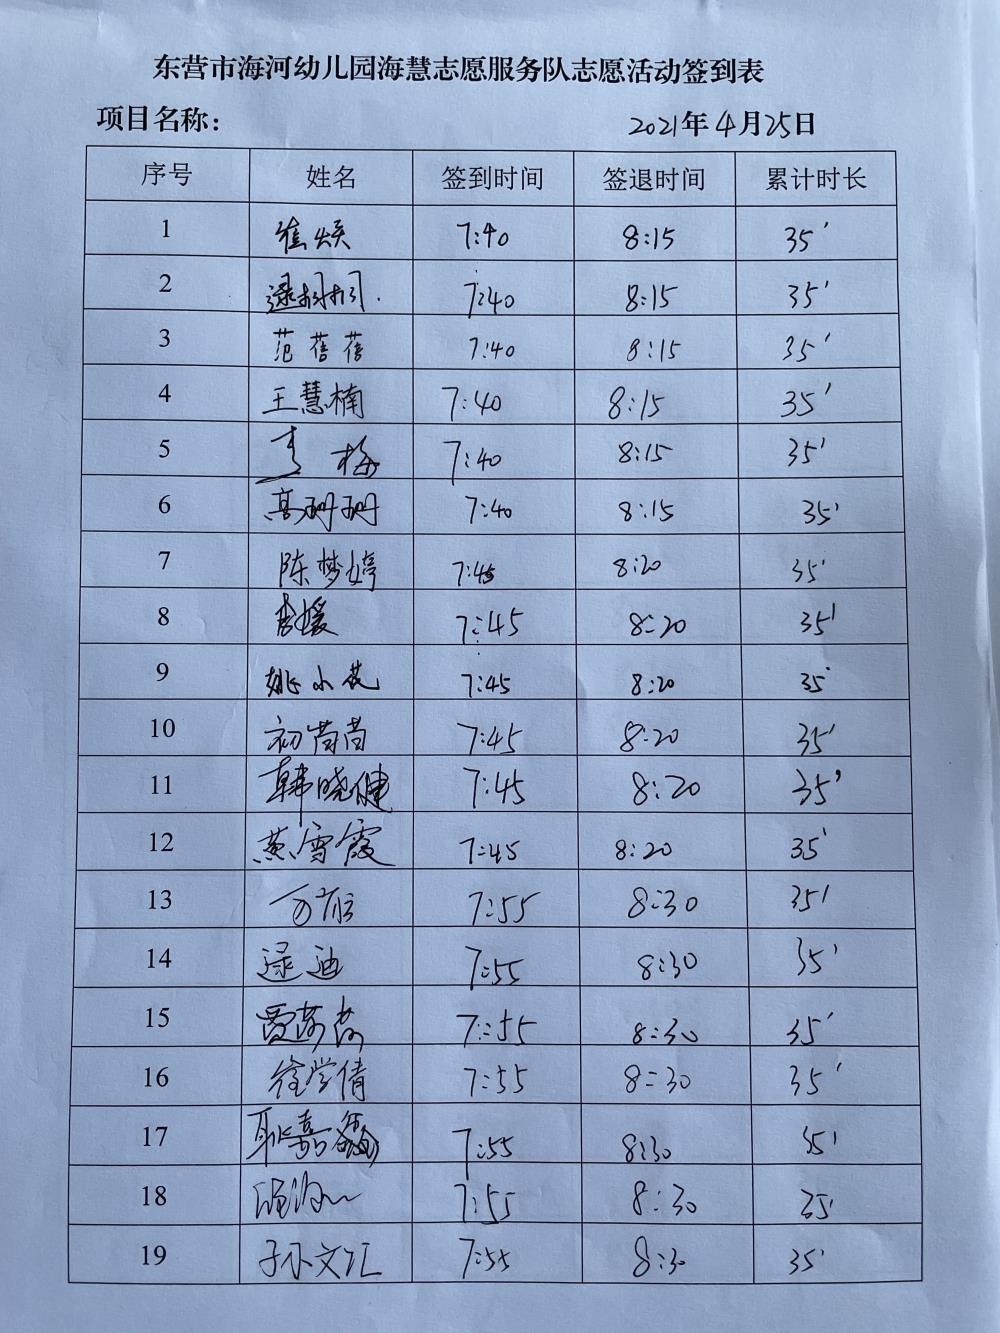 东营市海河幼儿园海慧志愿服务队志愿活动签到表
项目名称： 2021年4月25日
序号 姓名 签到时间 签退时间 累计时长
1 崔 7:40 8:15 35'
2 逯 7:40 8:15 35'
3 范蓓蓓 7:40 8:15 35'
4 王慧楠 7:40 8:15 35'
5 梅 7:40 8:15 35'
6 高珊珊 7:40 8:15 35'
7 陈梦婷 7:45 8:20 35'
8 李媛 7:45 8:20 35'
9 姚小花 7:45 8:20 35'
10 初苗苗 7:45 8:20 35'
11 韩晓健 7:45 8:20 35'
12 燕雪霞 7:45 8:20 35'
13 7:55 8:30 35'
14 逯迪 7:55 8:30 35'
15 贾 7:55 8:30 35'
16 徐学倩 7:55 8:30 35'
17 耿嘉 7:55 8:30 35'
18 7:55 8:30 35'
19 孙文汇 7:55 8:30 35'